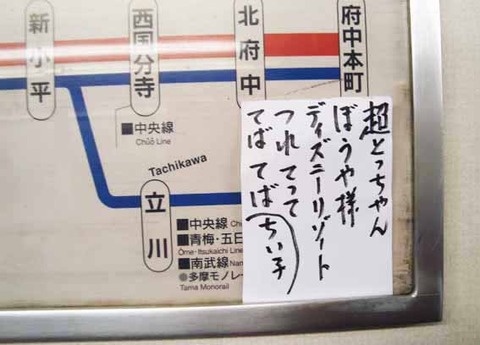 新小平
西国分寺
北府中
府中本町
■中央線
Chūō Line
Tachikawa
立川
■中央線 Ch
■青梅・五日
Ōme・Itsukaichi Line
■南武線 Nam
●多摩モノレー
Tama Monorail
超とっちゃん
ぼうや様
ディズニーリゾート
つれてって
てばてば(ちい子)